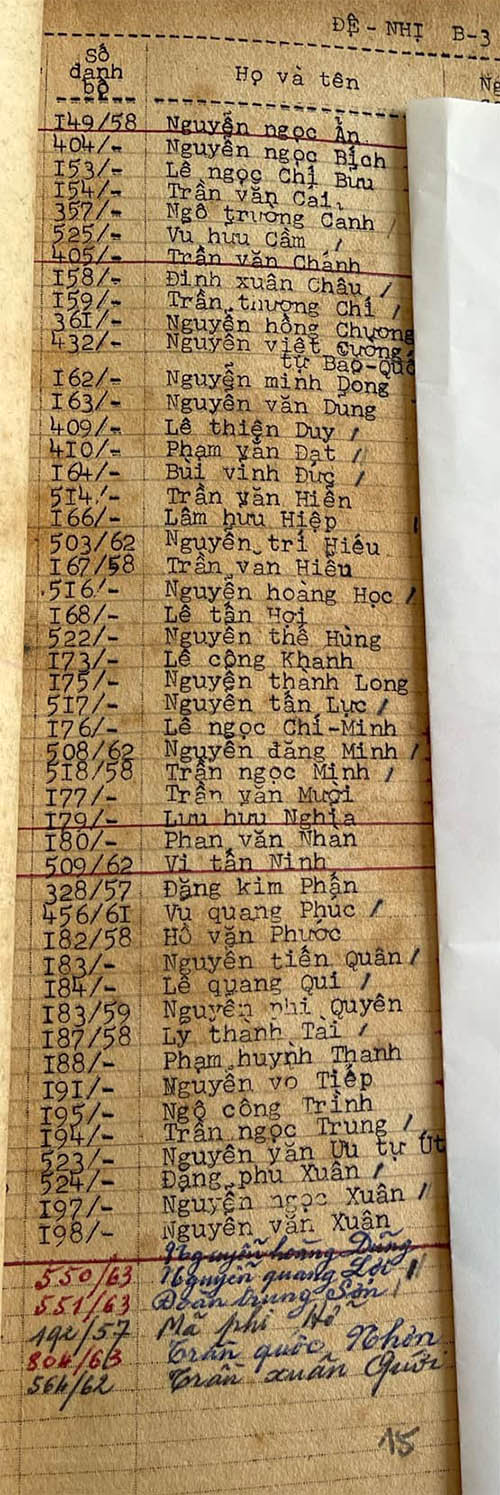 ĐỆ - NHỊ B-3
Số danh bộ
Họ và tên
I49/58 Nguyễn ngọc Ẩn
404/- Nguyễn ngọc Bích
I53/- Lê ngọc Chị Bửu
I54/- Trần văn Cai
357/- Ngô trường Canh
525/- Vu hưu Cầm
405/- Trần văn Chánh
I58/- Đinh xuân Châu
I59/- Trần thượng Chí
36I/- Nguyễn hồng Chương
432/- Nguyễn việt Cường
tự Bảo-Quố
I62/- Nguyễn minh Dong
I63/- Nguyễn văn Dũng
409/- Lê thiện Duy
4I0/- Phạm văn Đạt
I64/- Bùi vinh Đức
5I4/- Trần văn Hiền
I66/- Lâm hưu Hiệp
503/62 Nguyễn trí Hiếu
I67/58 Trần van Hiếu
5I6/- Nguyễn hoàng Học
I68/- Lê tấn Hợi
522/- Nguyễn thế Hùng
I73/- Lê công Khanh
I75/- Nguyễn thành Long
5I7/- Nguyễn tấn Lực
I76/- Lê ngọc Chí-Minh
508/62 Nguyễn đăng Minh
5I8/58 Trần ngọc Minh
I77/- Trần văn Mười
I79/- Lưu hưu Nghĩa
I80/- Phan văn Nhàn
509/62 Vi tấn Ninh
328/57 Đặng kim Phấn
456/6I Vụ quang Phúc
I82/58 Hồ văn Phước
I83/- Nguyễn tiến Quân
I84/- Lê quang Qui
I83/59 Nguyễn phi Quyên
I87/58 Ly thành Tài
I88/- Phạm huỳnh Thanh
I9I/- Nguyễn vo Tiếp
I95/- Ngô công Trình
I94/- Trần ngọc Trung
523/- Nguyễn văn Ưu tự Út
524/- Đặng phu Xuân
I97/- Nguyễn ngọc Xuân
I98/- Nguyễn văn Xuân
Nguyễn hoàng Dũng
550/63 Nguyễn quang Lợi
551/63 Đoàn trung Sơn
192/57 Mã phi Hổ
804/63 Trần quốc Nhơn
564/62 Trần xuân Gưởi
15